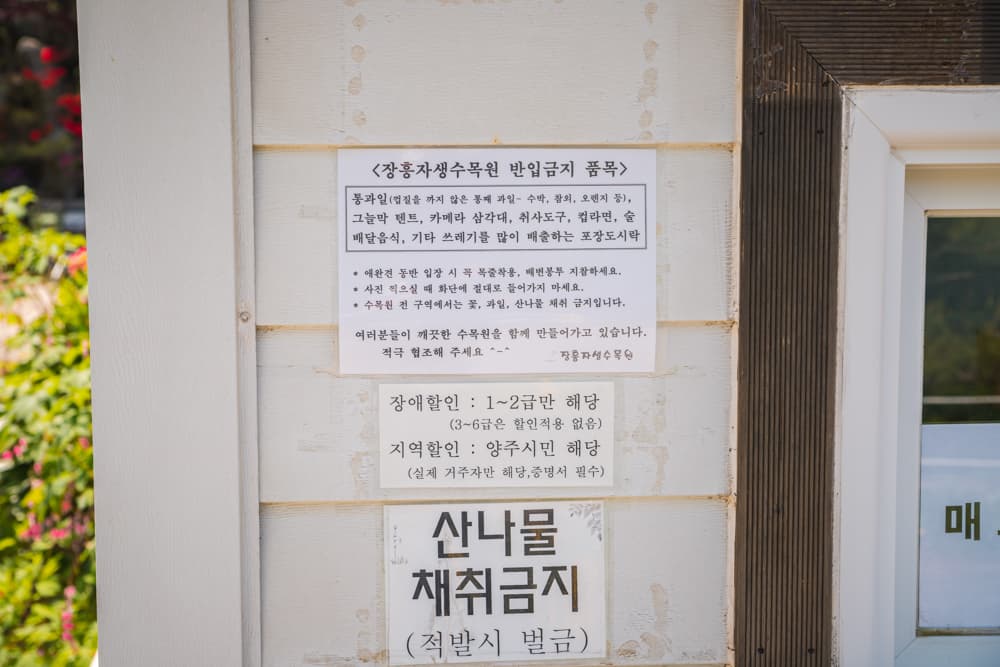 <장흥자생수목원 반입금지 품목>
통과일(껍질을 까지 않은 통째 과일- 수박, 참외, 오렌지 등),
그늘막 텐트, 카메라 삼각대, 취사도구, 컵라면, 술
배달음식, 기타 쓰레기를 많이 배출하는 포장도시락
* 애완견 동반 입장 시 꼭 목줄착용, 배변봉투 지참하세요.
* 사진 찍으실 때 화단에 절대로 들어가지 마세요.
* 수목원 전 구역에서는 꽃, 과일, 산나물 채취 금지입니다.
여러분들이 깨끗한 수목원을 함께 만들어가고 있습니다.
적극 협조해 주세요 ^-^
장흥자생수목원
장애할인 : 1~2급만 해당
(3~6급은 할인적용 없음)
지역할인 : 양주시민 해당
(실제 거주자만 해당,증명서 필수)
산나물
채취금지
(적발시 벌금)
매